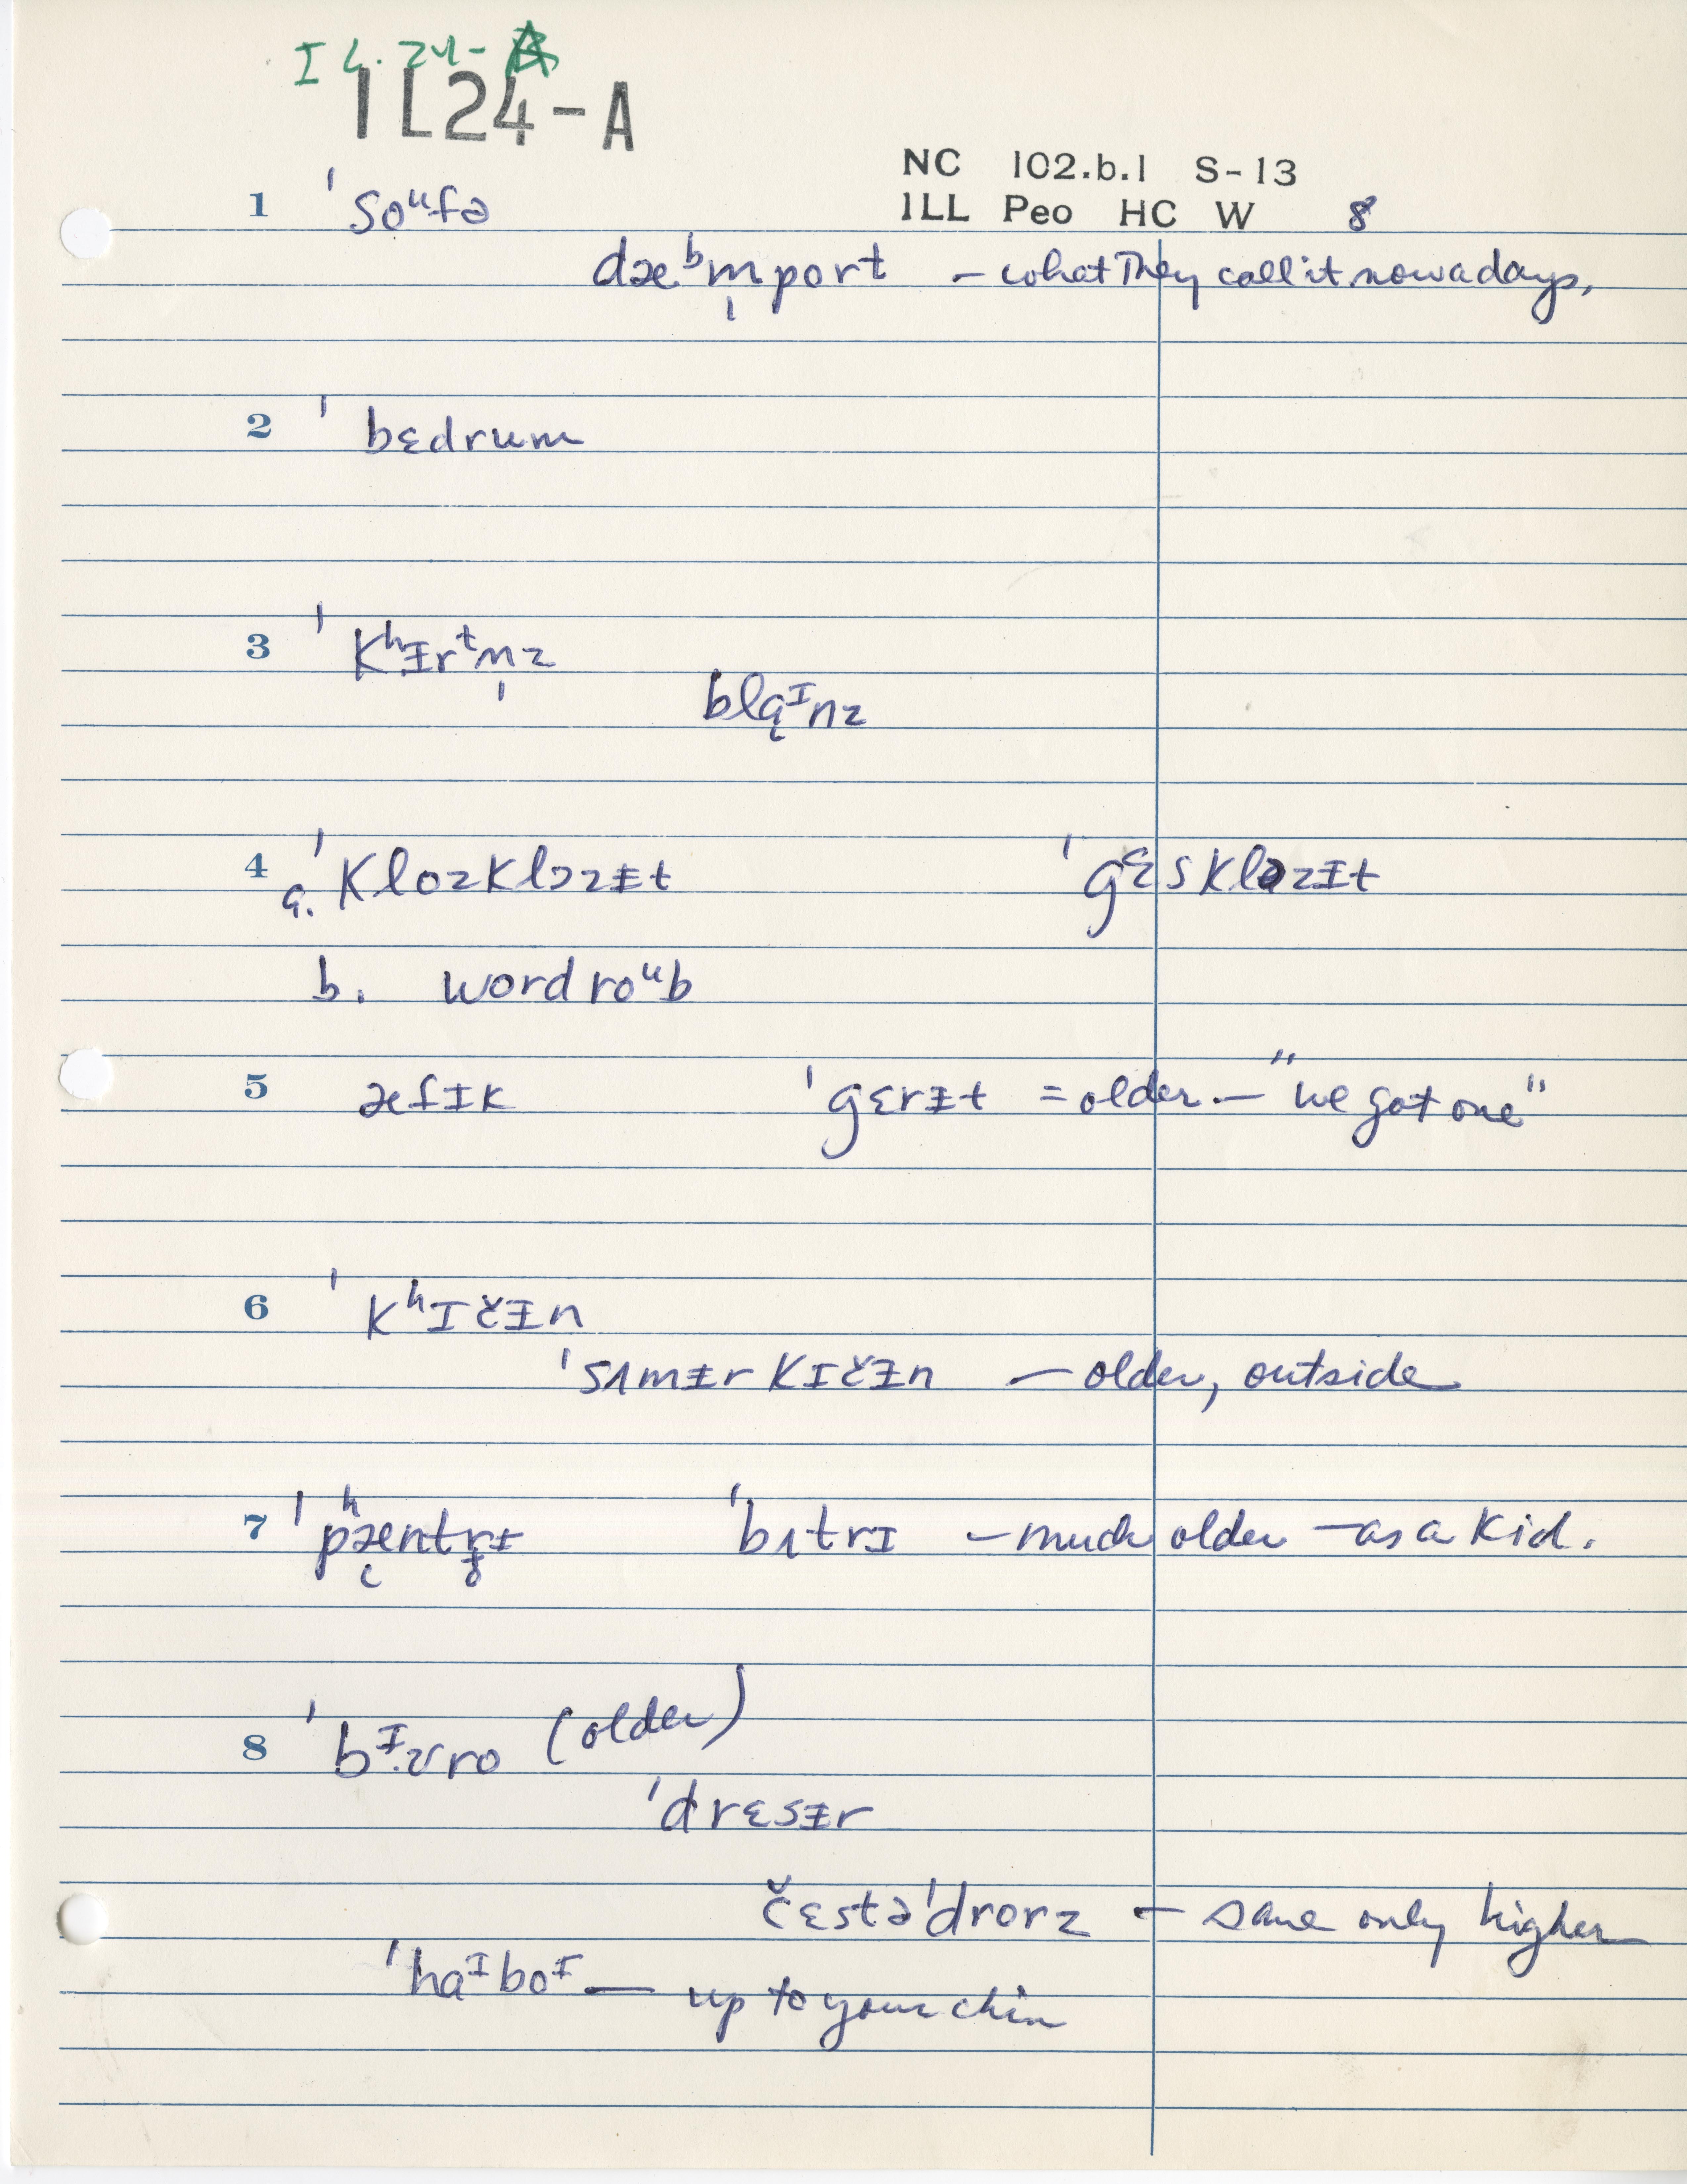 IL.24-A
IL24-A
NC 102.b.1 S-13
ILL Peo HC W 8
1 ˈsoᵘfə
dæᵇm̩port – what they call it nowadays.
2 ˈbɛdrum
3 ˈkʰɨrᵗn̩z
blɑ̨ᶦnz
4 a. ˈklozklɔzɨt ˈgɛsklɔzɨt
b. wordroᵘb
5 æfɪk ˈgɛrɨt = older – "we got one"
6 ˈkʰɪčɨn
ˈsʌmɨrkɪčɨn – older, outside
7 ˈpʰæ̨ntrɨ ˈbʌtrɪ – much older – as a kid.
8 ˈbᶦ·ʊro (older)
ˈdrɛsɨr
čɛstəˈdrorz – same only higher
ˈhaᶦboᶦ – up to your chin